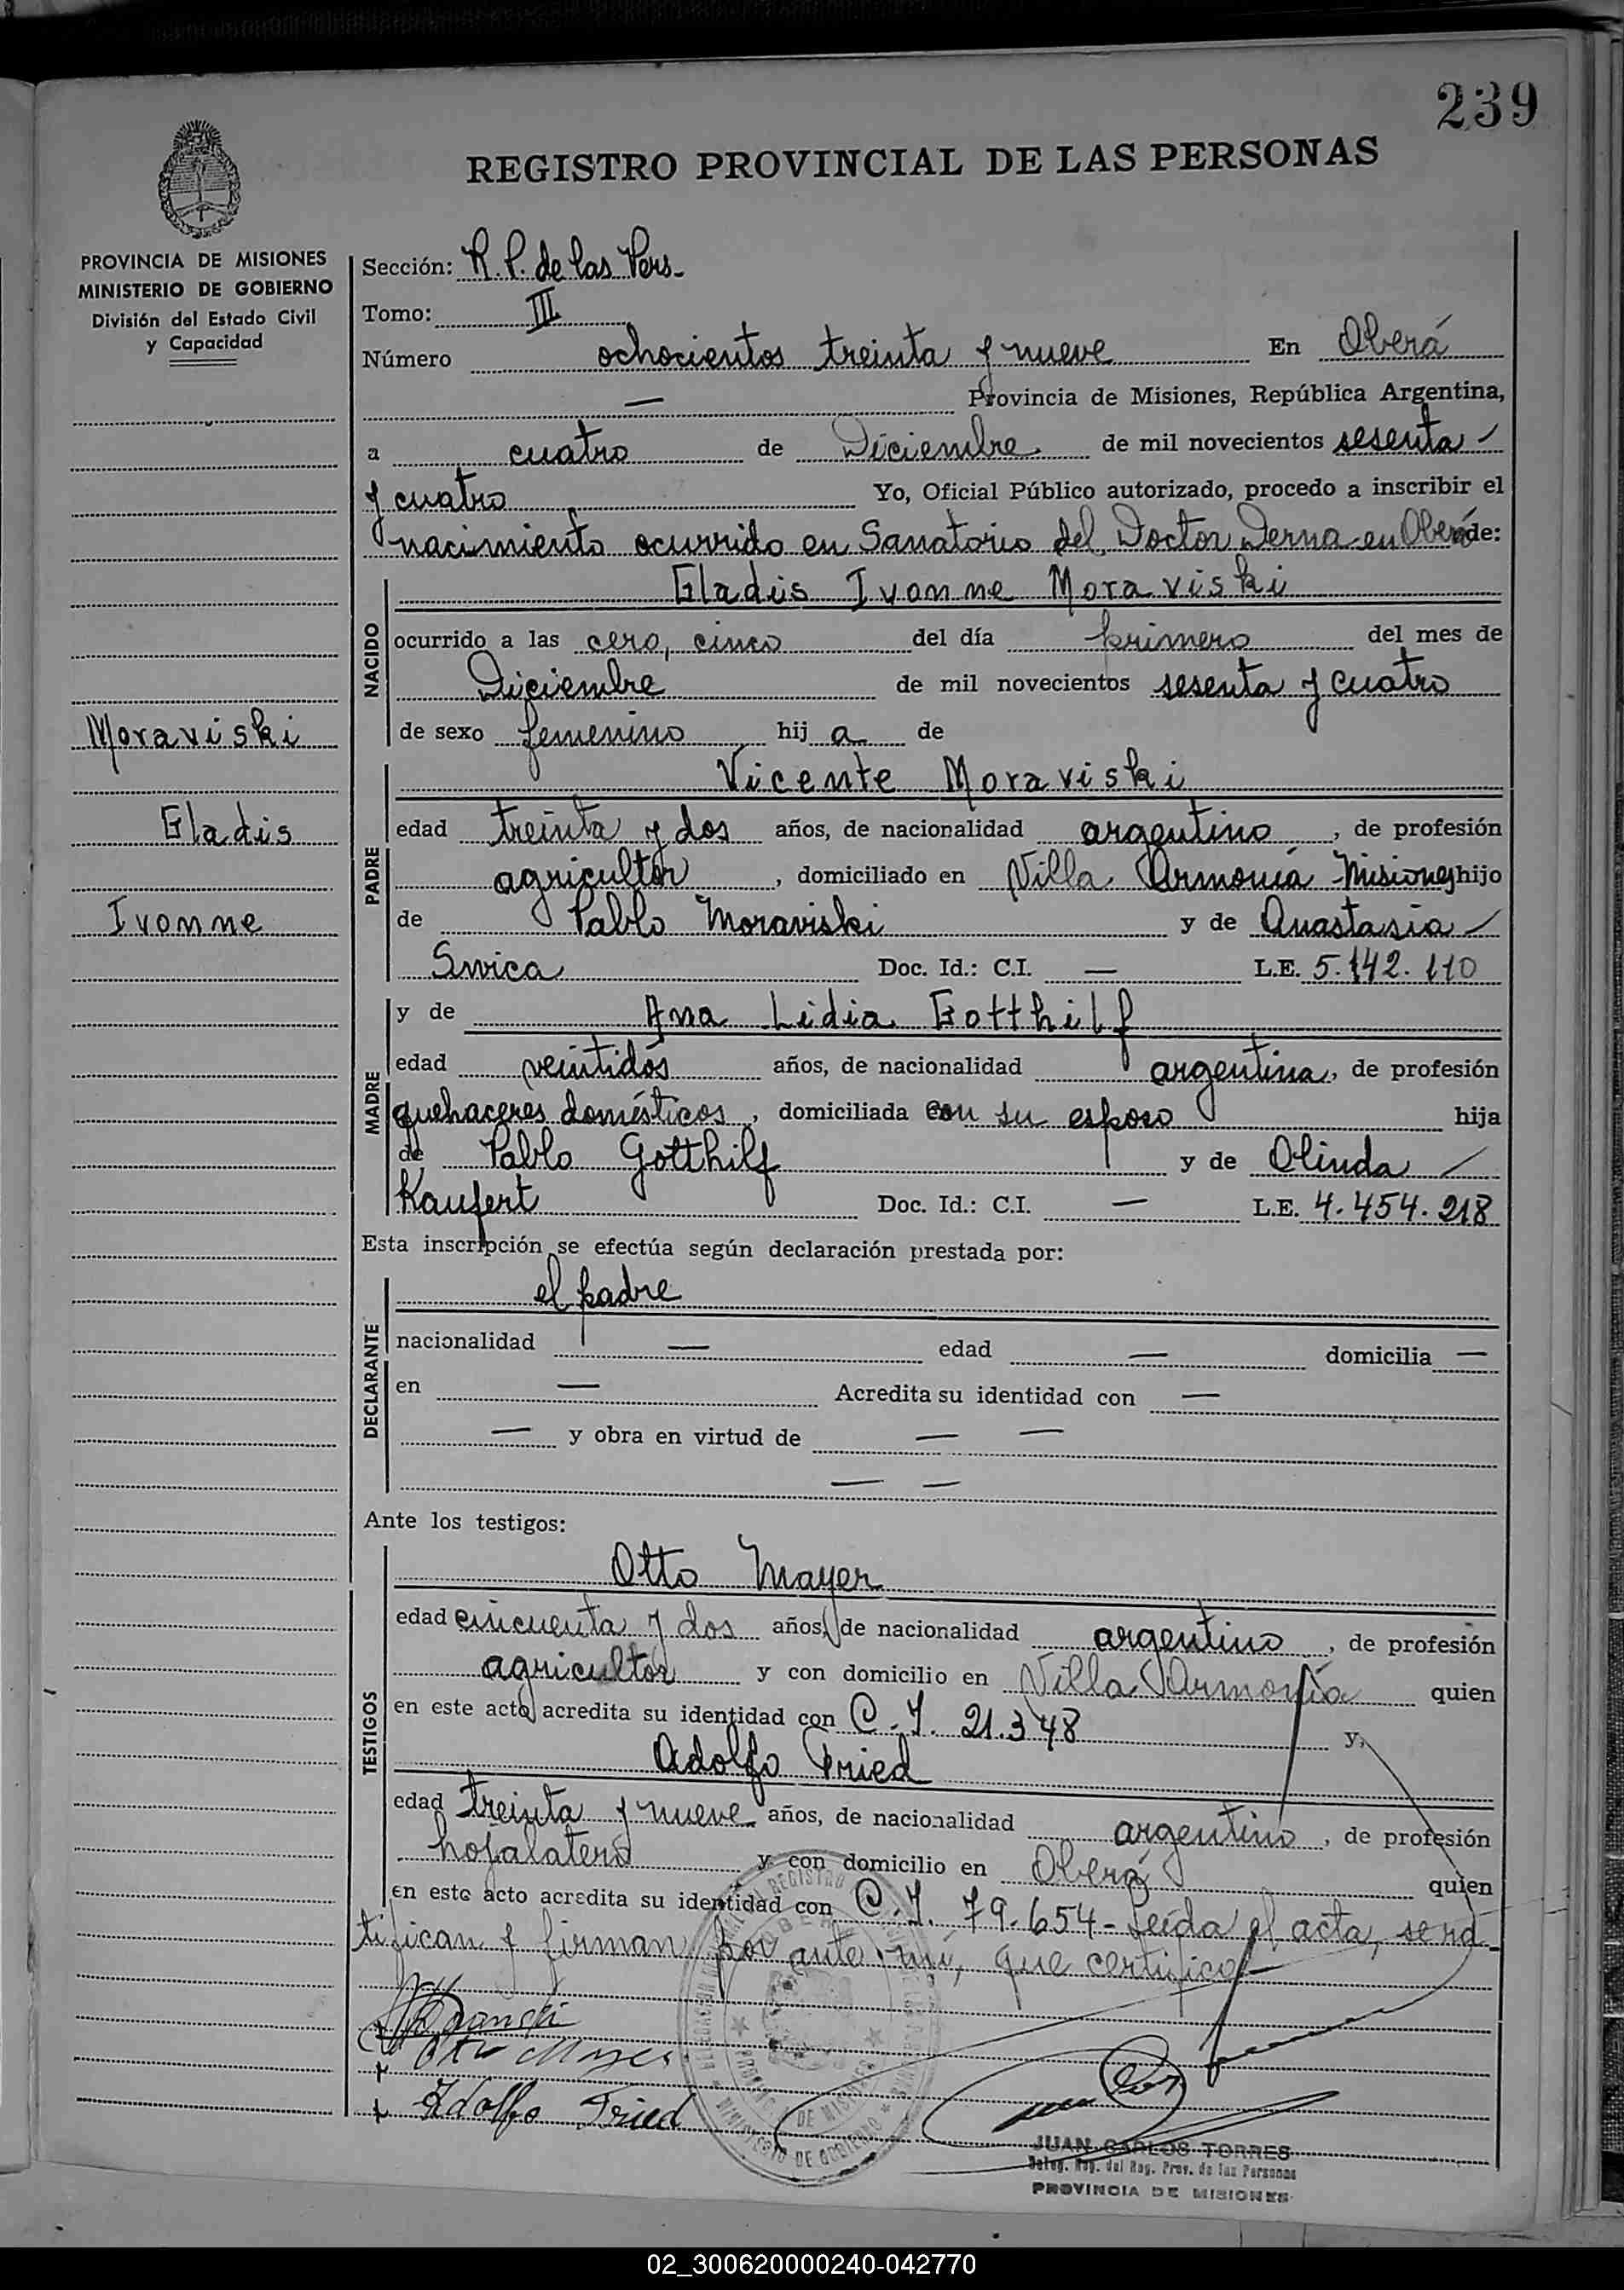 239
REGISTRO PROVINCIAL DE LAS PERSONAS
PROVINCIA DE MISIONES
MINISTERIO DE GOBIERNO
División del Estado Civil
y Capacidad
Moraviski
Gladis
Ivonne
Sección: R. P. de las Pers-
Tomo: III
Número ochocientos treinta y nueve En Oberá
— Provincia de Misiones, República Argentina,
a cuatro de Diciembre de mil novecientos sesenta
y cuatro Yo, Oficial Público autorizado, procedo a inscribir el
nacimiento ocurrido en Sanatorio del Doctor Derna en Oberá de:
NACIDO
Gladis Ivonne Moraviski
ocurrido a las cero, cinco del día primero del mes de
Diciembre de mil novecientos sesenta y cuatro
de sexo femenino hij a de
PADRE
Vicente Moraviski
edad treinta y dos años, de nacionalidad argentino, de profesión
agricultor, domiciliado en Villa Armonía - Misiones hijo
de Pablo Moraviski y de Anastasia
Swica Doc. Id.: C.I. — L.E. 5.142.110
MADRE
y de Ana Lidia Gotthilf
edad veintidós años, de nacionalidad argentina, de profesión
quehaceres domésticos, domiciliada con su esposo hija
de Pablo Gotthilf y de Olinda
Kaufert Doc. Id.: C.I. — L.E. 4.454.218
Esta inscripción se efectúa según declaración prestada por:
DECLARANTE
el padre
nacionalidad — edad — domicilia —
en — Acredita su identidad con —
— y obra en virtud de — —
— —
Ante los testigos:
TESTIGOS
Otto Mayer
edad cincuenta y dos años, de nacionalidad argentino, de profesión
agricultor y con domicilio en Villa Armonía quien
en este acto acredita su identidad con C.I. 21.348 y,
Adolfo Fried
edad treinta y nueve años, de nacionalidad argentino, de profesión
hojalatero y con domicilio en Oberá quien
en este acto acredita su identidad con C.I. 79.654 - Leída el acta, se ra-
tifican y firman por ante mí, que certifico-
Otto Mayer
Adolfo Fried
JUAN CARLOS TORRES
Deleg. Reg. del Reg. Prov. de las Personas
PROVINCIA DE MISIONES
02_300620000240-042770